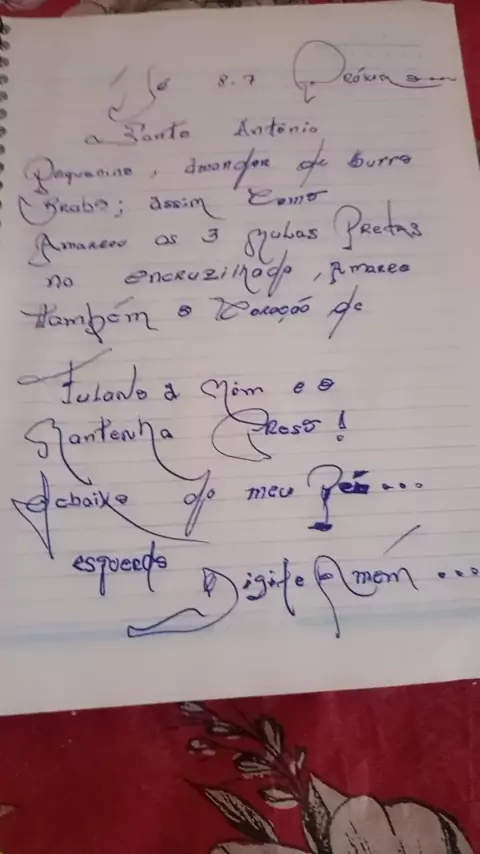 8.7
Santo Antônio
Pequenino, amansador de burro
Brabo; assim como
Amarrou as 3 mulas Pretas
na encruzilhada, Amarre
também o Coração de
Fulano a mim e o
Mantenha Preso!
debaixo do meu Pé...
esquerdo Digite Amém...